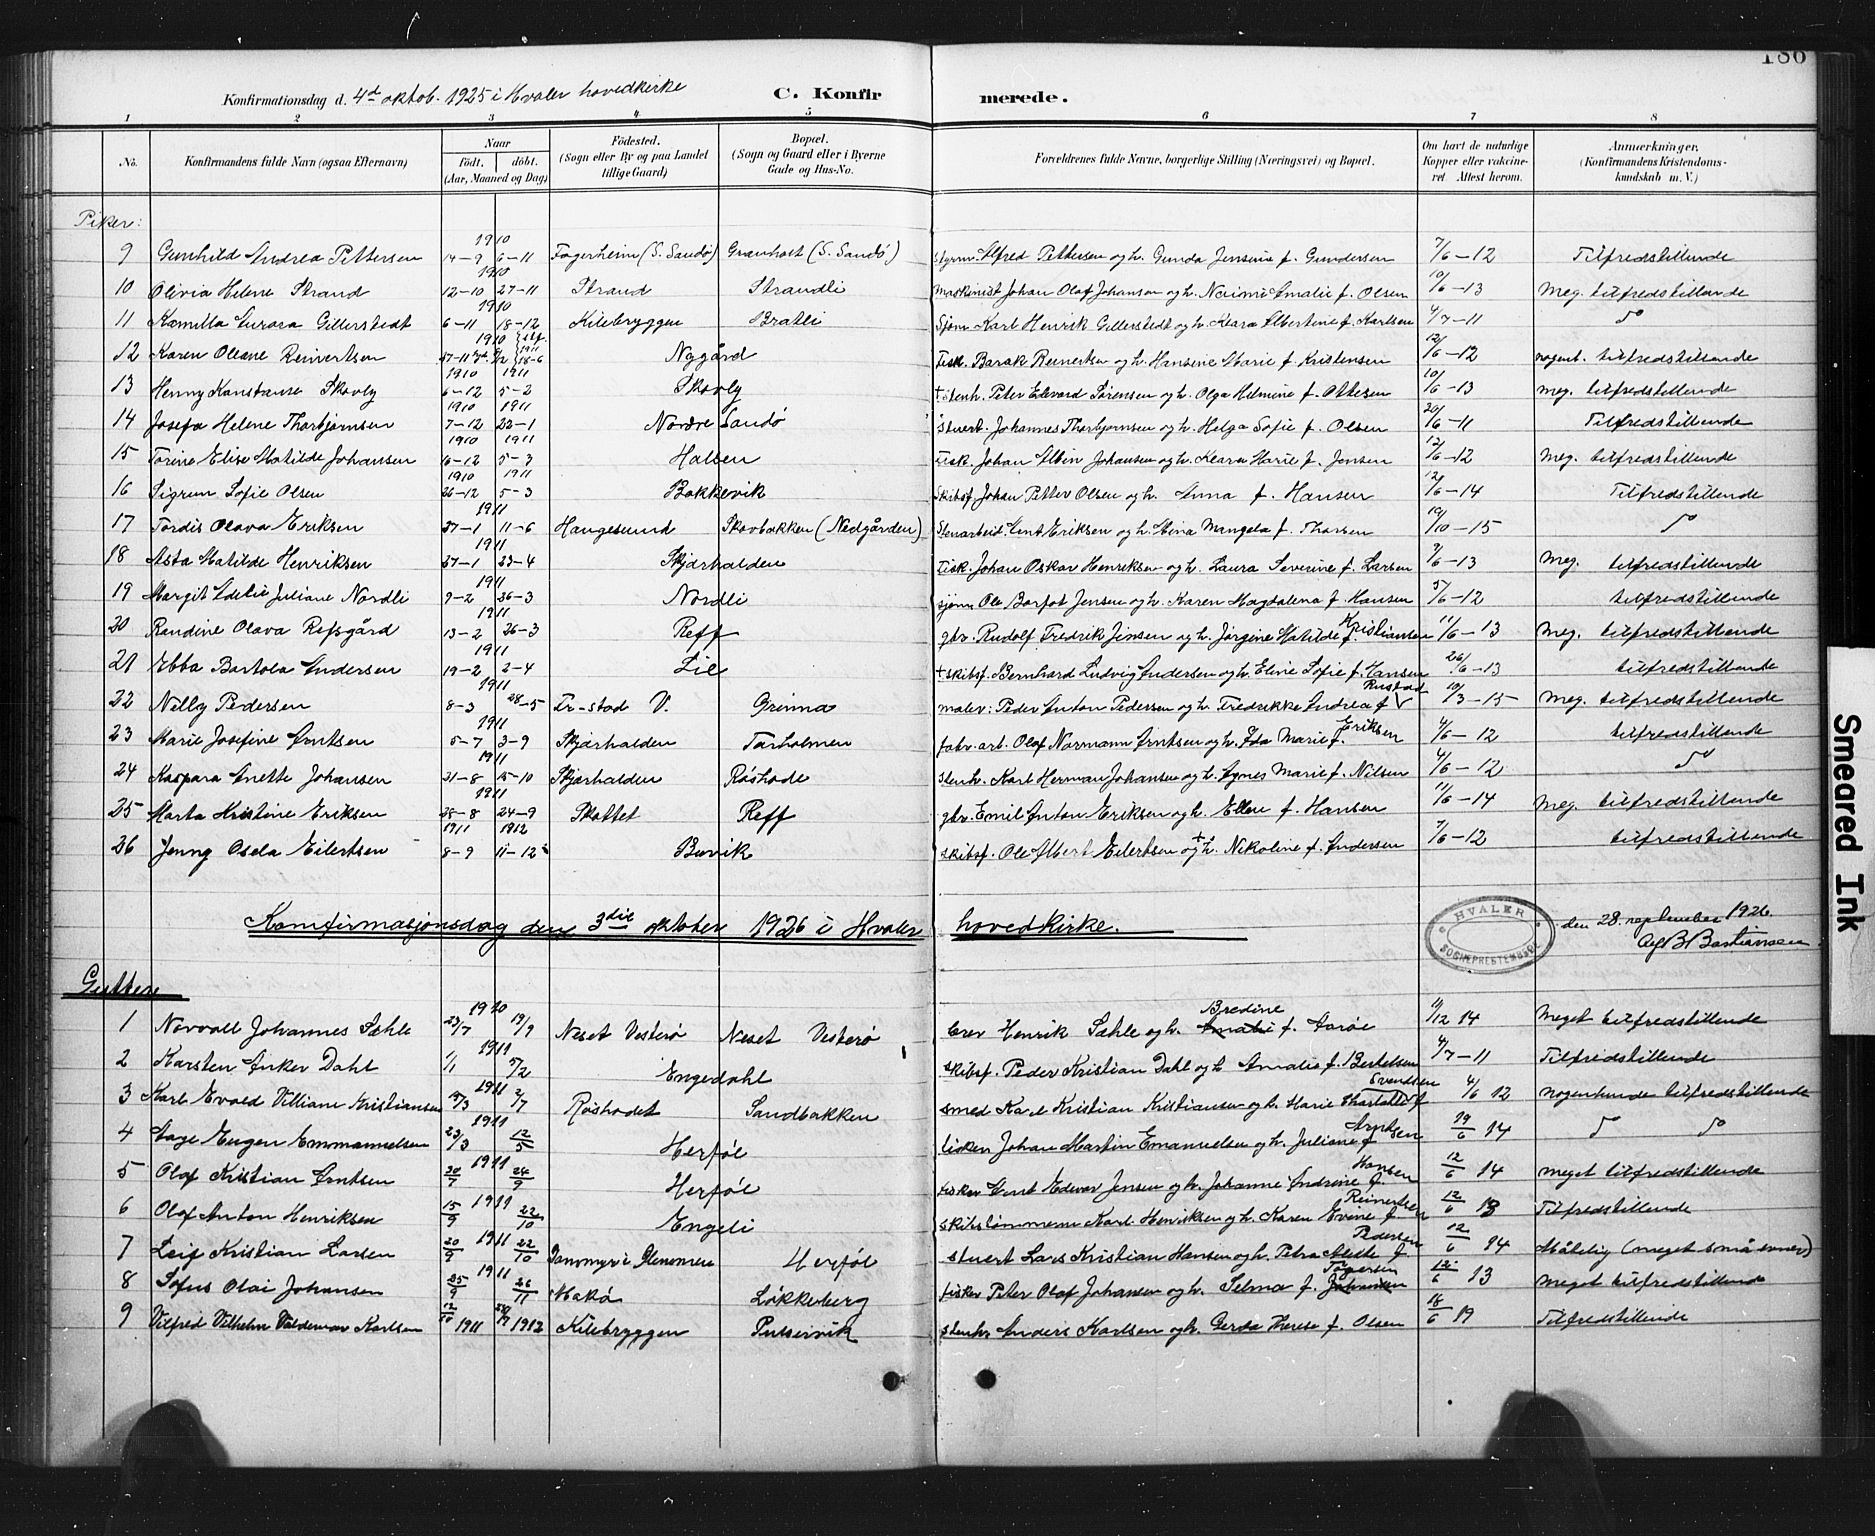 186
Konfirmationsdag d. 4d oktob. 1925 i Hvaler hovedkirke C. Konfirmerede.
1 2 3 4 5 6 7 8
No. Konfirmandens fulde Navn (ogsaa Efternavn) Naar født, døbt. (Aar, Maaned og Dag) Fødested. (Sogn eller By og paa Landet tillige Gaard) Bopæl. (Sogn og Gaard eller i Byerne Gade og Hus-No. Forældrenes fulde Navne, borgerlige Stilling (Næringsvei) og Bopæl. Om havt de naturlige Kopper eller vaccineret Attest herom. Anmerkninger. (Konfirmandens Kristendomskundskab m. V.)
Piker:
9 Gunhild Andrea Pettersen 1910 14-9 6-11 Fagerheim (S. Sandø) Gramholt (S. Sandø) styrm. Alfred Pettersen og h. Gunda Jensine f. Gundersen 7/6-12 Tilfredstillende
10 Olivia Helene Strand 1910 12-10 27-11 Strand Strandli Maskinist Johan Olaf Johansen og h. Amalie f. Olsen 10/6-13 Meg. tilfredstillende
11 Kamilla Aurora Gillerstedt 1910 6-11 18-12 Kilebryggen Bratli Sjøm. Karl Henrik Gillerstedt og h. Klara Albertine f. Karlsen 4/7-11 do
12 Karen Oleane Reinertsen 1910 27-11 1911 18-6 Nygård Fisk. Barak Reinertsen og h. Hansine Marie f. Kristensen 12/6-12 nogenl. tilfredstillende
13 Henny Konstanse Skovly 1910 6-12 1911 5-2 Skovly † Stenh. Peter Edvard Sørensen og h. Olga Helmine f. Ottesen 10/6-13 Meg. tilfredstillende
14 Josefa Helene Thorbjørnsen 1910 7-12 1911 22-1 Nordre Sandø Stuert. Johannes Thorbjørnsen og h. Helga Sofie f. Olsen 20/6-11 Tilfredstillende
15 Torine Elise Matilde Johansen 1910 16-12 1911 5-3 Halsen Fisk. Johan Albin Johansen og h. Klara Marie f. Jensen 12/6-12 Meg. tilfredstillende
16 Sigrun Sofie Olsen 1910 26-12 1911 5-3 Bakkevik Skibsf. Johan Petter Olsen og h. Anna f. Hansen 12/6-14 Tilfredstillende
17 Tordis Olava Eriksen 1911 27-1 11-6 Haugesund Skovbakken (Nedgården) Stenarbeid. Ernt Eriksen og h. Mina Mangela f. Thorsen 19/10-15 do
18 Asta Matilde Henriksen 1911 27-1 23-4 Skjærhalden Fisk. Johan Oskar Henriksen og h. Laura Severine f. Larsen 9/6-13 Meg. tilfredstillende
19 Margit Edelie Juliane Nordli 1911 9-2 26-3 Nordli sjøm. Ole Barfot Jensen og h. Karen Magdalena f. Hansen 5/6-12 tilfredstillende
20 Randine Olava Refsgård 1911 13-2 26-3 Reff gbr. Rudolf Fredrik Jensen og h. Jørgine Matilde f. Kristiansen 11/6-13 Meg. tilfredstillende
21 Ebba Bartola Andersen 1911 19-2 2-4 Lie † skibsf. Bernhard Ludvig Andersen og h. Eline Sofie f. Hansen 26/6-13 tilfredstillende
22 Nelly Pedersen 1911 8-3 28-5 Fr-stad V. Grinna maler: Peder Anton Pedersen og h. Fredrikke Andrea f. Rustad 10/3-15 Meg. tilfredstillende
23 Marie Josefine Arntsen 1911 5-7 3-9 Skjærhalden Tarholmen fabr. arb. Olaf Normann Arntsen og h. Ida Marie f. Eriksen 4/6-12 tilfredstillende
24 Kaspara Anette Johansen 1911 31-8 15-10 Skjærhalden Røshode stenh. Karl Herman Johansen og h. Agnes Marie f. Nilsen 4/6-12 do
25 Marta Kristine Eriksen 1911 28-8 24-9 Skottet Reff gbr. Emil Anton Eriksen og h. Ellen f. Hansen 11/6-14 Meg. tilfredstillende
26 Jenny Osela Eilertsen 1911 8-9 1912 11-12 Buvik skibsf. Ole Albert Eilertsen og † h. Nikoline f. Andersen 7/6-12 tilfredstillende
Konfirmasjonsdag den 3die oktober 1926 i Hvaler hovedkirke.
HVALER SOGNEPRESTEMBEDE
den 28. september 1926
Alf B Bastiansen
Gutter
1 Norvall Johannes Sæhle 1910 23/7 19/9 Neset Vesterø Neset Vesterø Henrik Sæhle og h. Amalie Bredine f. Aarøe 11/12 14 Meget tilfredstillende
2 Karsten Anker Dahl 1911 1/1 5/2 Engedahl skibsf. Peder Kristian Dahl og h. Amalie f. Bertelsen 4/7-11 Tilfredstillende
3 Karl Evald Villiam Kristiansen 1911 19/3 2/7 Røshodet Sandbakken smed Karl Kristian Kristiansen og h. Marie Charlotte f. Svendsen 4/6 12 nogenlunde tilfredstillende
4 Aage Eugen Emmanuelsen 1911 23/3 12/5 Herføl fisker Johan Martin Emanuelsen og h. Juliane f. Arntsen 19/6 14 do do
5 Olaf Kristian Arntsen 1911 20/7 24/9 Herføl fisker Ernt Edvar Jensen og h. Johanne Andrine f. Hansen 12/6 14 meget tilfredstillende
6 Olaf Anton Henriksen 1911 15/9 22/10 Engeli skibstømmerm Karl Henriksen og h. Karen Evine f. Reinertsen 12/6 13 Tilfredstillende
7 Leif Kristian Larsen 1911 20/9 22/10 Dammyr i Glemmen Herføl stuert Lars Kristian Hansen og h. Petra Alette f. Pedersen 12/6 14 Målelig (meget små evner)
8 Sofus Olai Johansen 1911 25/9 26/11 Makø Løkkeberg fisker Peter Olaf Johansen og h. Selma f. Johansen Torgersen 12/6 13 meget tilfredstillende
9 Vilfred Vilhelm Valdemar Karlsen 12/10 1911 1912 Kilebryggen Pulservik stenhr Anders Karlsen og h. Gerda Therese f. Olsen 18/6 19 Tilfredstillende
Smeared Ink